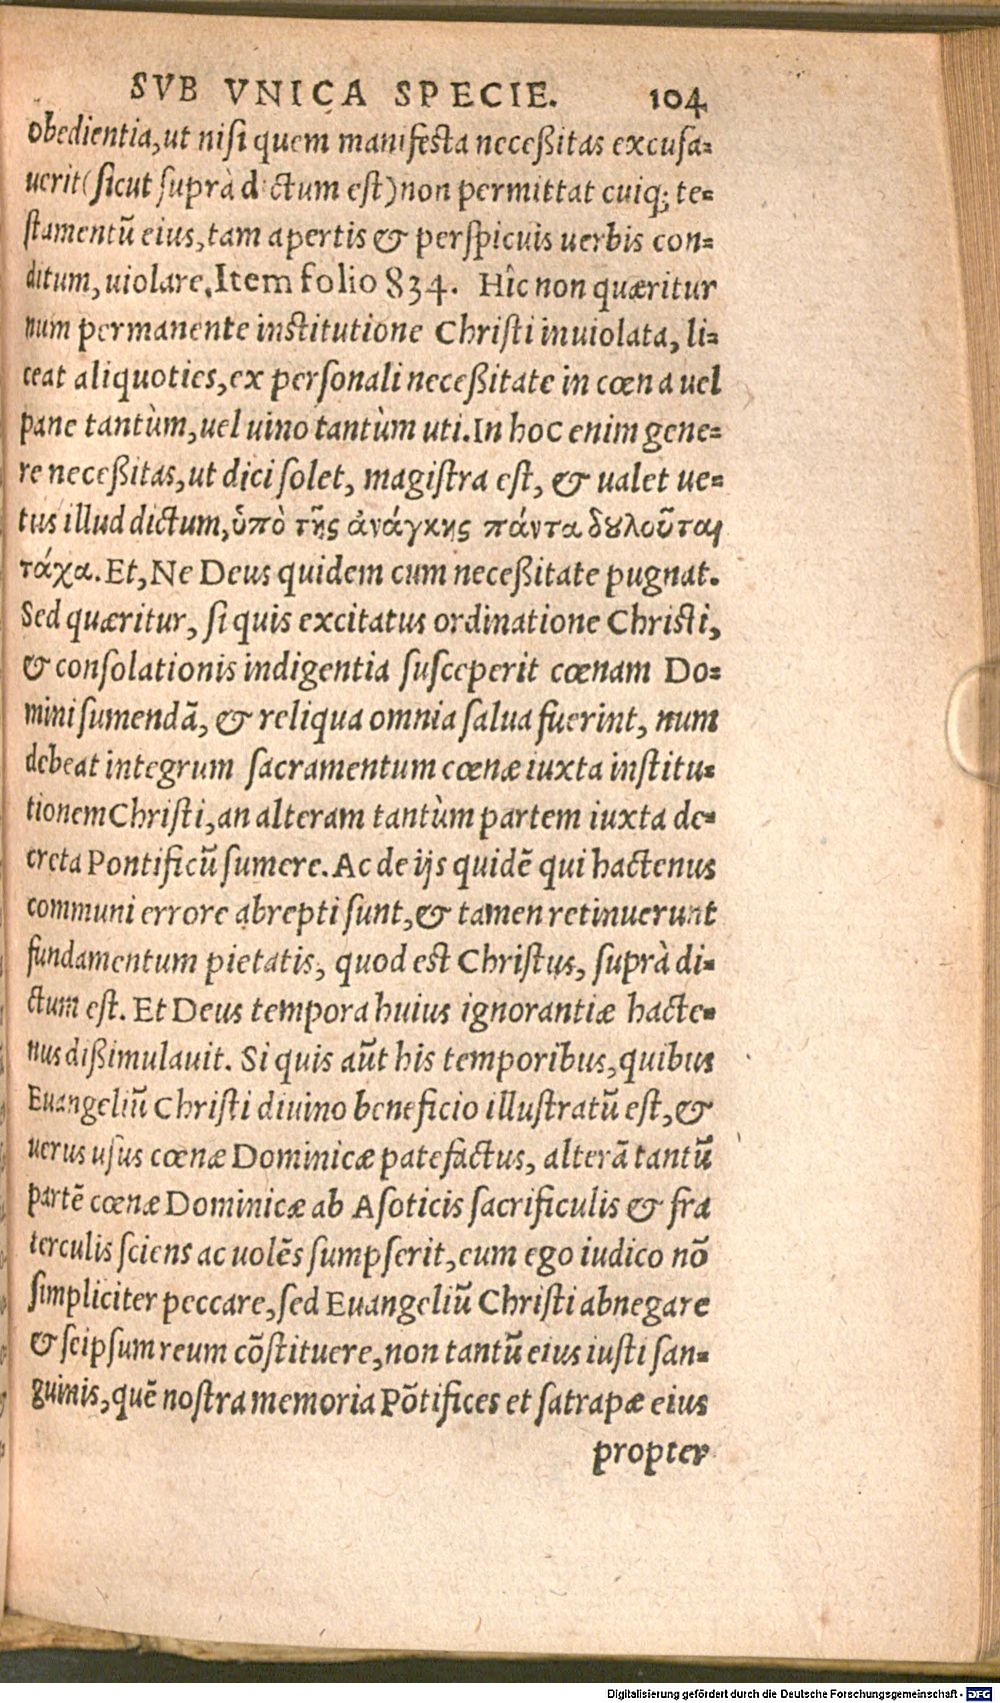 SVB VNICA SPECIE. 104
obedientia, ut nisi quem manifesta neceßitas excusa=
uerit (sicut suprà dictum est) non permittat cuiq; te=
stamentū eius, tam apertis & perspicuis uerbis con=
ditum, uiolare. Item folio 834. Hîc non quæritur
num permanente institutione Christi inuiolata, li=
ceat aliquoties, ex personali neceßitate in cœna uel
pane tantùm, uel uino tantùm uti. In hoc enim gene=
re neceßitas, ut dici solet, magistra est, & ualet ue=
tus illud dictum, ὑπὸ τῆς ἀνάγκης πάντα δȣλοῦται
τάχα. Et, Ne Deus quidem cum neceßitate pugnat.
Sed quæritur, si quis excitatus ordinatione Christi,
& consolationis indigentia susceperit cœnam Do=
mini sumendā, & reliqua omnia salua fuerint, num
debeat integrum sacramentum cœnæ iuxta institu=
tionem Christi, an alteram tantùm partem iuxta de=
creta Pontificū sumere. Ac de ijs quidē qui hactenus
communi errore abrepti sunt, & tamen retinuerunt
fundamentum pietatis, quod est Christus, suprà di=
ctum est. Et Deus tempora huius ignorantiæ hacte=
nus dißimulauit. Si quis aūt his temporibus, quibus
Euangeliū Christi diuino beneficio illustratū est, &
uerus usus cœnæ Dominicæ patefactus, alterā tantū
partē cœnæ Dominicæ ab Asoticis sacrificulis & fra
terculis sciens ac uolēs sumpserit, eum ego iudico nō
simpliciter peccare, sed Euangeliū Christi abnegare
& seipsum reum cōstituere, non tantū eius iusti san=
guinis, quē nostra memoria Pōtifices et satrapæ eius
propter
Digitalisierung gefördert durch die Deutsche Forschungsgemeinschaft - DFG